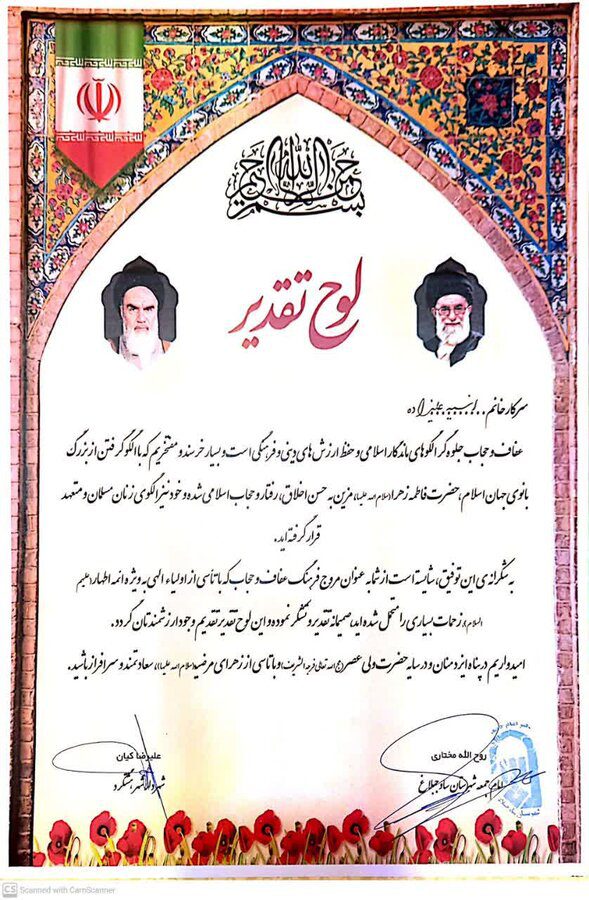 بسم الله الرحمن الرحیم
لوح تقدیر
سرکار خانم .. انسیه علیزاده
عفاف و حجاب جلوه گر الگوهای ماندگار اسلامی و حفظ ارزش های دینی و فرهنگی است و بسیار خرسند و مفتخریم که با الگو گرفتن از بزرگ
بانوی جهان اسلام، حضرت فاطمه زهرا (سلام الله علیها) مزین به حسن اخلاق، رفتار و حجاب اسلامی شده و خود نیز الگوی زنان مسلمان و متعهد
قرار گرفته اید.
به شکرانه ی این توفیق، شایسته است از شما به عنوان مروج فرهنگ عفاف و حجاب که با تأسی از اولیاء الهی به ویژه ائمه اطهار (علیهم
السلام)، زحمات بسیاری را متحمل شده اید، صمیمانه تقدیر و تشکر نموده و این لوح تقدیر تقدیم وجود ارزشمندتان گردد.
امیدواریم در پناه ایزد منان و در سایه حضرت ولی عصر (عج الله تعالی فرجه الشریف) و با تاسی از زهرای مرضیه (سلام الله علیها)، سعادتمند و سرافراز باشید.
روح الله مختاری
امام جمعه شهرستان ساوجبلاغ
علیرضا کیان
شهردار شهر هشتگرد
CS Scanned with CamScanner